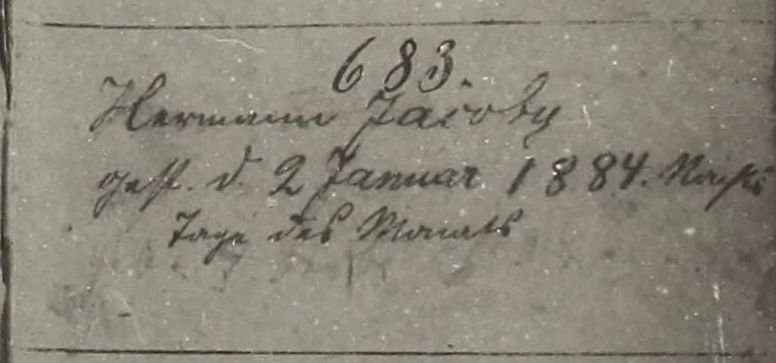 683.
Hermann Jacoby
gest. d. 2 Januar 1884.
Tage des Monats